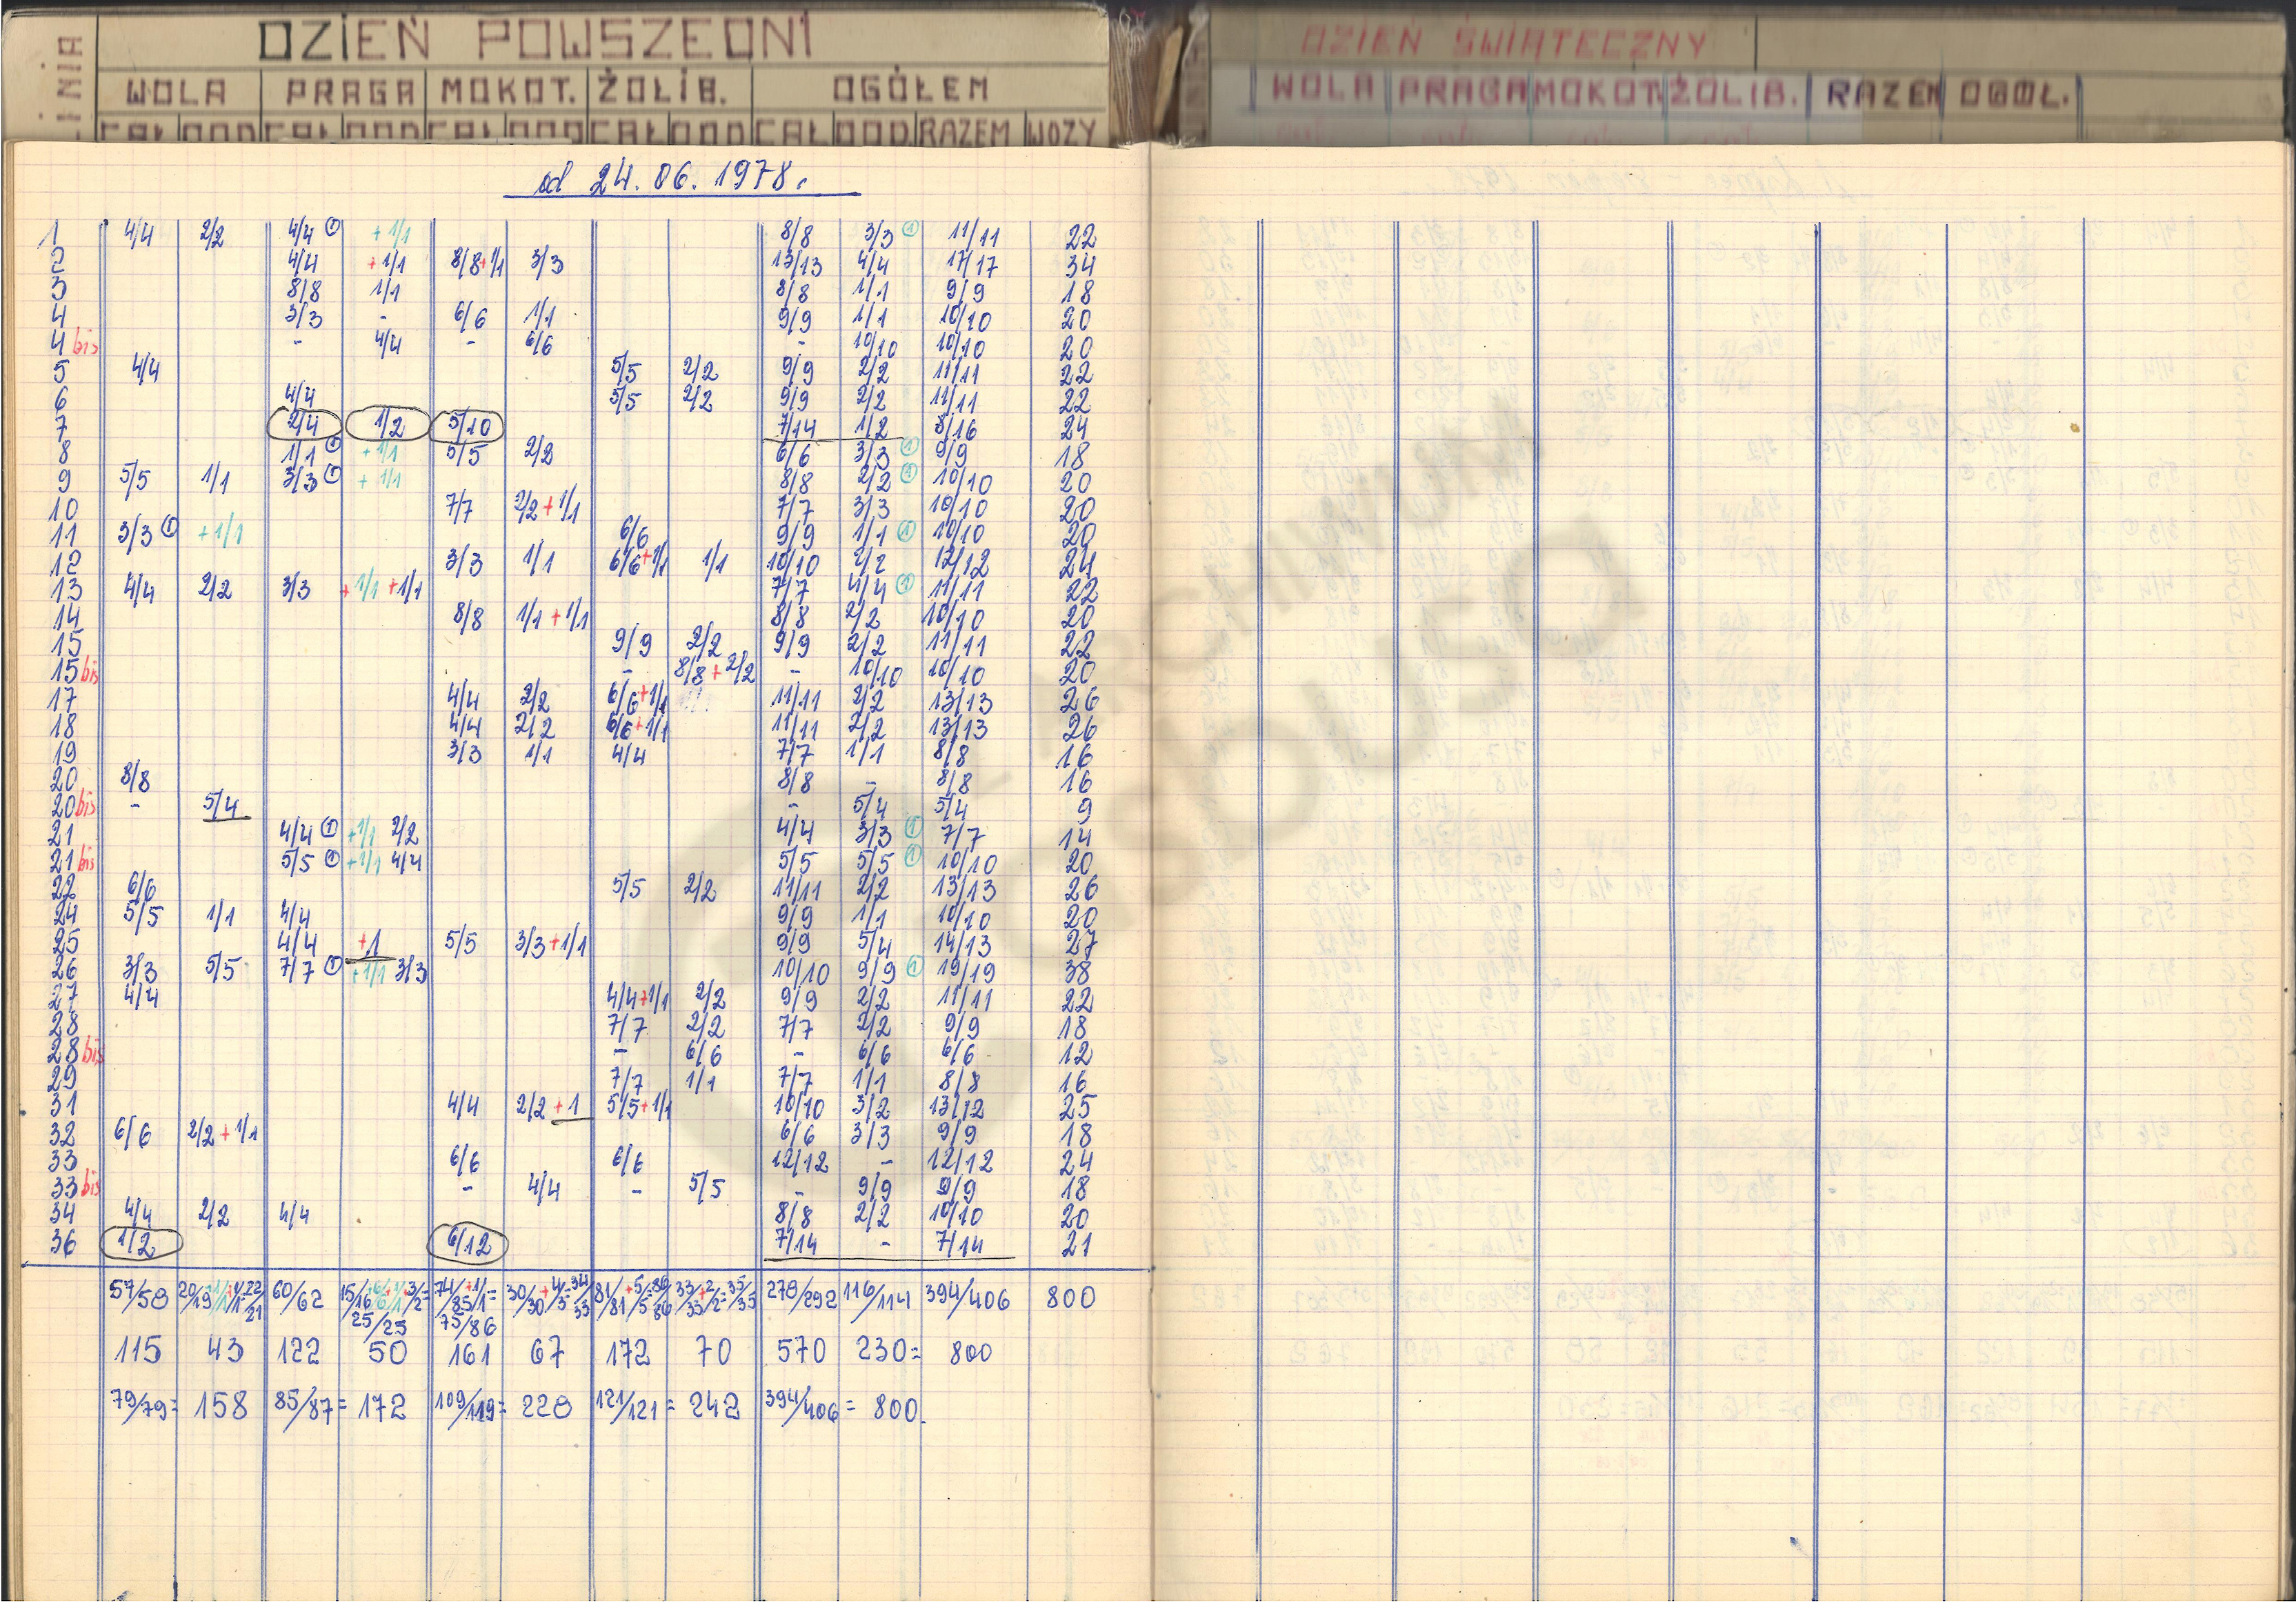 LINIA
DZIEŃ POWSZEDNI
WOLA PRAGA MOKOT. ŻOLIB. OGÓŁEM
CAŁ DOD CAŁ DOD CAŁ DOD CAŁ DOD CAŁ DOD RAZEM WOZY
DZIEŃ ŚWIĄTECZNY
WOLA PRAGA MOKOT. ŻOLIB. RAZEM OGÓŁ.
od 24.06.1978.
1 4/4 2/2 4/4 ① +1/1 8/8 3/3 ① 11/11 22
2 4/4 +1/1 8/8+1/1 3/3 13/13 4/4 17/17 34
3 8/8 1/1 8/8 1/1 9/9 18
4 3/3 - 6/6 1/1 9/9 1/1 10/10 20
4 bis - 4/4 - 6/6 - 10/10 10/10 20
5 4/4 5/5 2/2 9/9 2/2 11/11 22
6 4/4 5/5 2/2 9/9 2/2 11/11 22
7 2/4 1/2 5/10 7/14 1/2 8/16 24
8 1/1 ① +1/1 5/5 2/2 6/6 3/3 ① 9/9 18
9 5/5 1/1 3/3 ① +1/1 8/8 2/2 ① 10/10 20
10 7/7 2/2+1/1 7/7 3/3 10/10 20
11 3/3 ① +1/1 6/6 9/9 1/1 ① 10/10 20
12 3/3 1/1 6/6+1/1 1/1 10/10 2/2 12/12 24
13 4/4 2/2 3/3 +1/1 +1/1 7/7 4/4 ① 11/11 22
14 8/8 1/1+1/1 8/8 2/2 10/10 20
15 9/9 2/2 9/9 2/2 11/11 22
15 bis - 8/8+2/2 - 10/10 10/10 20
17 4/4 2/2 6/6+1/1 11/11 2/2 13/13 26
18 4/4 2/2 6/6+1/1 11/11 2/2 13/13 26
19 3/3 1/1 4/4 7/7 1/1 8/8 16
20 8/8 8/8 - 8/8 16
20 bis - 5/4 - 5/4 5/4 9
21 4/4 ① +1/1 2/2 4/4 3/3 ① 7/7 14
21 bis 5/5 ① +1/1 4/4 5/5 5/5 ① 10/10 20
22 6/6 5/5 2/2 11/11 2/2 13/13 26
24 5/5 1/1 4/4 9/9 1/1 10/10 20
25 4/4 +1 5/5 3/3+1/1 9/9 5/4 14/13 27
26 3/3 5/5 7/7 ① +1/1 3/3 10/10 9/9 ① 19/19 38
27 4/4 4/4+1/1 2/2 9/9 2/2 11/11 22
28 7/7 2/2 7/7 2/2 9/9 18
28 bis - 6/6 - 6/6 6/6 12
29 7/7 1/1 7/7 1/1 8/8 16
31 4/4 2/2+1 5/5+1/1 10/10 3/2 13/12 25
32 6/6 2/2+1/1 6/6 3/3 9/9 18
33 6/6 6/6 12/12 - 12/12 24
33 bis - 4/4 - 5/5 - 9/9 9/9 18
34 4/4 2/2 4/4 8/8 2/2 10/10 20
36 1/2 6/12 7/14 - 7/14 21
57/58 20/19+1/1+1/1 22/21 60/62 15/16+6/6+1/1+3/2= 74/85+1/1= 30/30+4/3=34/33 81/81+5/5=86/86 33/33+2/2=35/35 278/292 116/114 394/406 800
25/25 75/86
115 43 122 50 161 67 172 70 570 230= 800
79/79= 158 85/87= 172 109/119= 228 121/121= 242 394/406 = 800.
ARCHIWUM